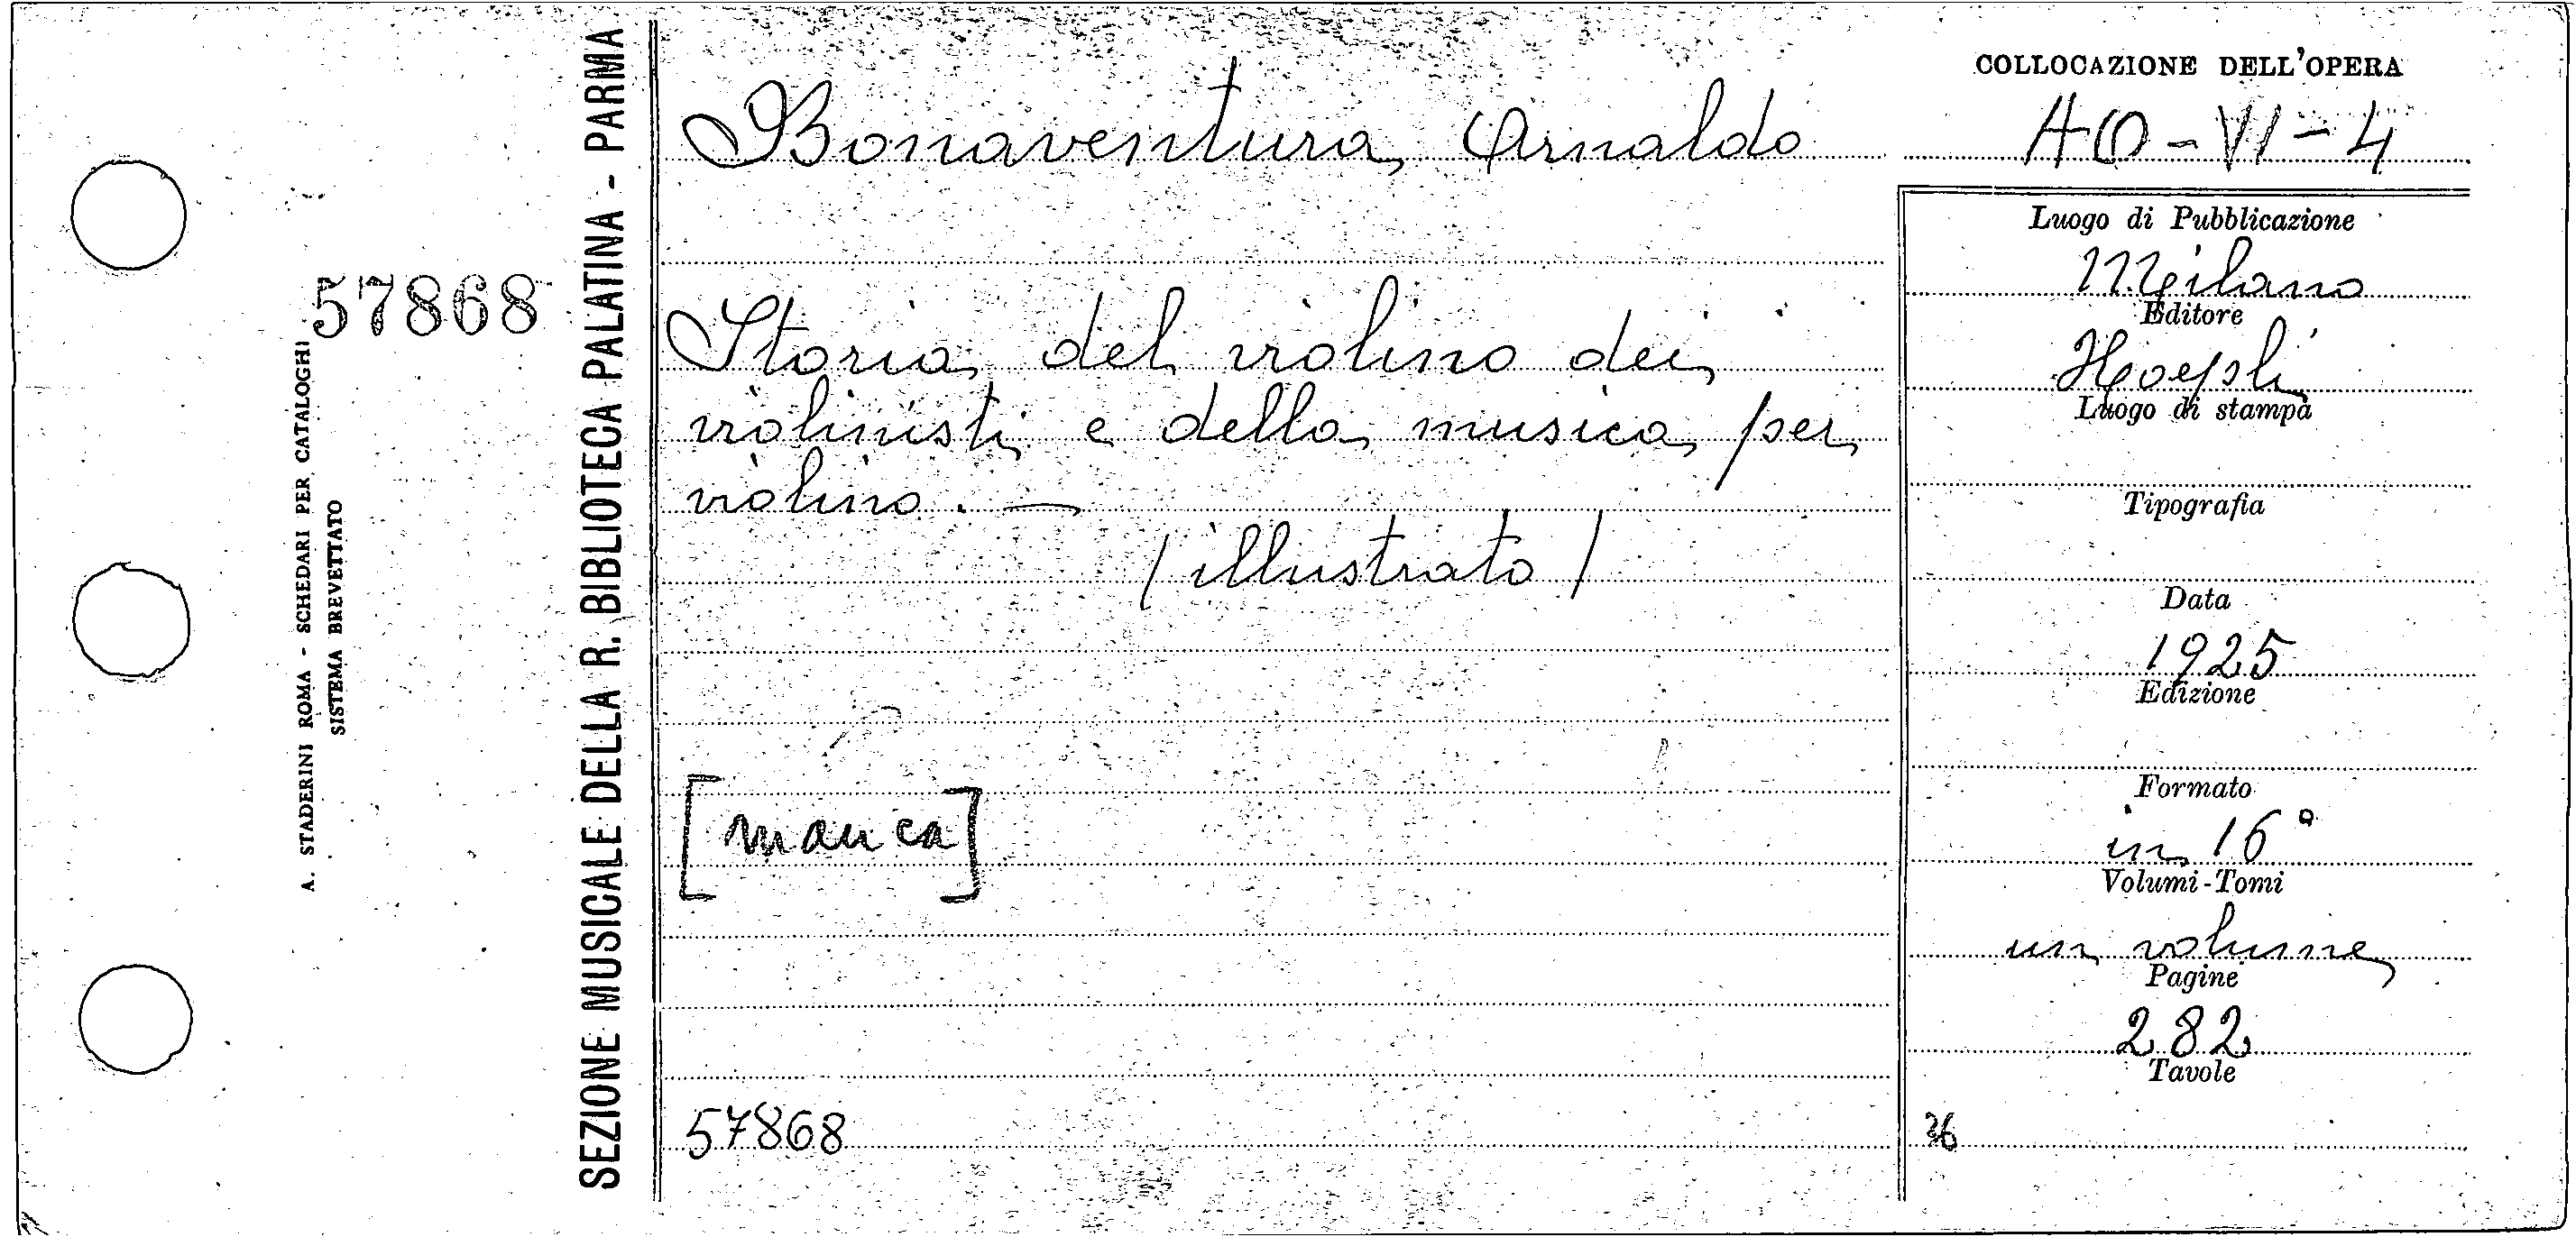 57868
A. STADERINI ROMA - SCHEDARI PER CATALOGHI
SISTEMA BREVETTATO
SEZIONE MUSICALE DELLA R. BIBLIOTECA PALATINA - PARMA
Bonaventura, Arnaldo
Storia del violino dei
violinisti e della musica per
violino. —
/ illustrato /
[manca]
57868
COLLOCAZIONE DELL'OPERA
AO-VI-4
Luogo di Pubblicazione
Milano
Editore
Hoepli
Luogo di stampa
Tipografia
Data
1925
Edizione
Formato
in 16°
Volumi-Tomi
un volume
Pagine
282
Tavole